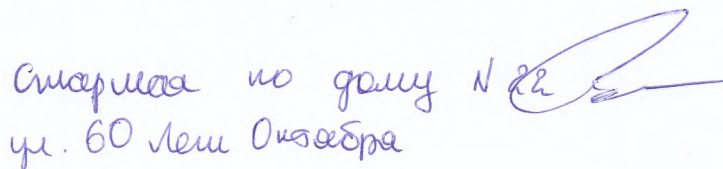 Старшая по дому N 22
ул. 60 лет Октября